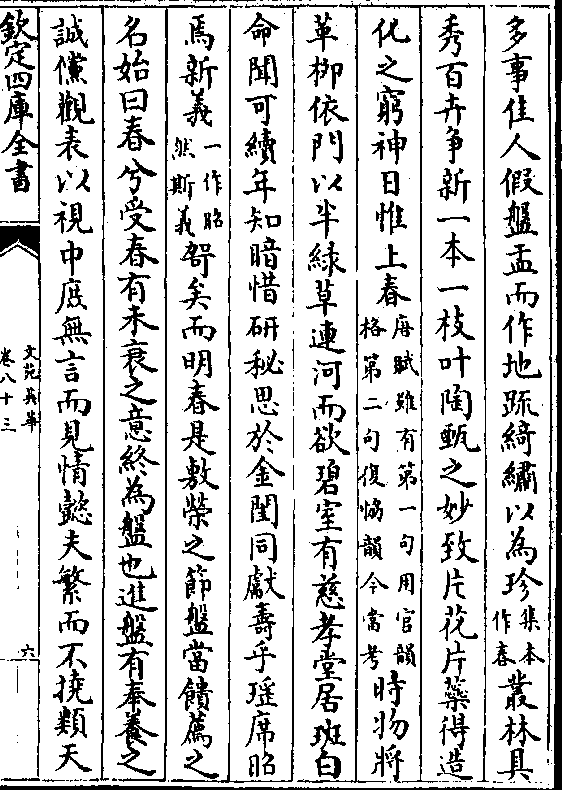 多事佳人假盤盂而作地疏綺繡以為珍集本作春叢林具
秀百卉争新一本一枝叶陶甄之妙致片花片蘂得造
化之窮神日惟上春唐賦雖有第一句用官韻格第二句復協韻今當考時物將
革柳依門以半緑草連河而欲碧室有慈孝堂居班白
命聞可續年知暗惜研秘思於金閨同獻壽乎瑶席昭
焉新義一作昭然斯義哿矣而明春是敷榮之節盤當饋薦之
名始曰春兮受春有未衰之意終為盤也進盤有奉養之
誠儻觀表以視中庶無言而見情懿夫繁而不撓類天
欽定四庫全書
文苑英華
卷八十三
六